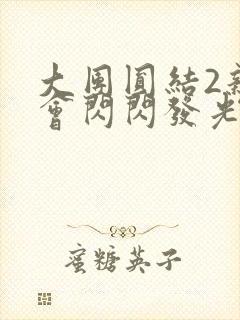 大團圓結2
會閃閃發光
蜜糖英子